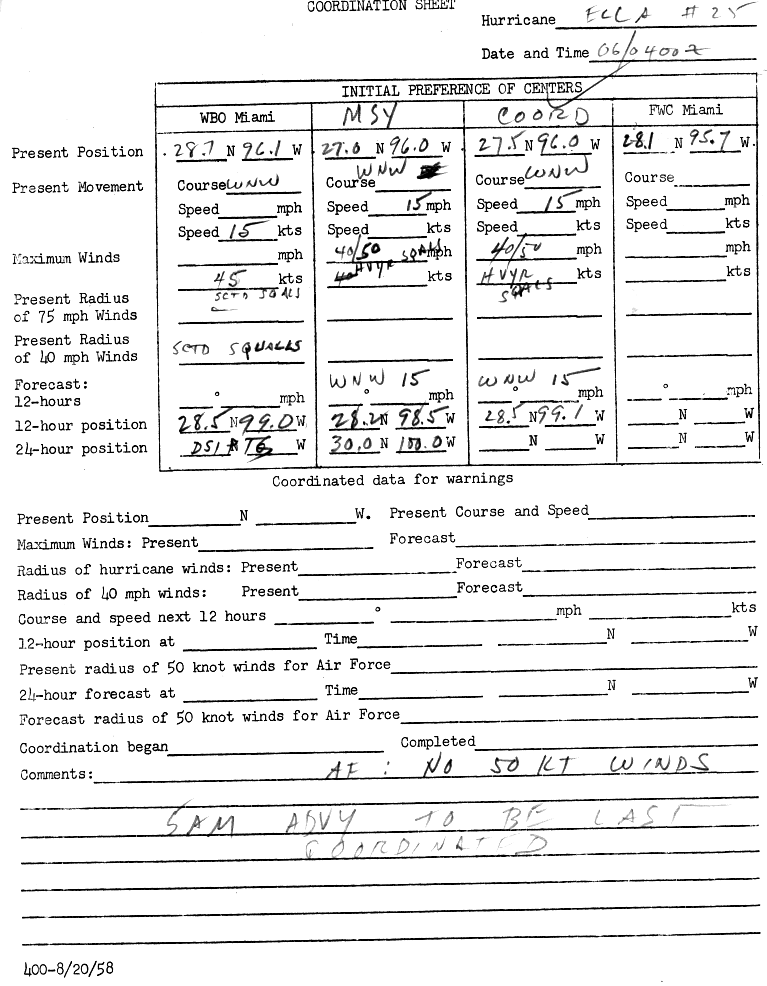 COORDINATION SHEET
Hurricane ELLA #25
Date and Time 06/0400z
INITIAL PREFERENCE OF CENTERS
WBO Miami MSY COORD FWC Miami
Present Position 28.7 N 96.1 W 27.0 N 96.0 W 27.5 N 96.0 W 28.1 N 95.7 W.
Present Movement Course WNW Course WNW Course WNW Course
Speed mph Speed 15 mph Speed 15 mph Speed mph
Speed 15 kts Speed kts Speed kts Speed kts
Maximum Winds mph 40/50 SQALS mph 40/50 mph
45 kts HVYR kts HVYR kts kts
Present Radius of 75 mph Winds SCTD SQALS SQALS
Present Radius of 40 mph Winds SCTD SQUALLS
Forecast: WNW 15 WNW 15
12-hours ° mph ° mph ° mph ° mph
12-hour position 28.5 N 99.0 W 28.2 N 98.5 W 28.5 N 99.1 W N W
24-hour position W 30.0 N 100.0 W N W N W
Coordinated data for warnings
Present Position N W. Present Course and Speed
Maximum Winds: Present Forecast
Radius of hurricane winds: Present Forecast
Radius of 40 mph winds: Present Forecast
Course and speed next 12 hours ° mph kts
12-hour position at Time N W
Present radius of 50 knot winds for Air Force
24-hour forecast at Time N W
Forecast radius of 50 knot winds for Air Force
Coordination began Completed
Comments: AF: NO 50 KT WINDS
5AM ADVY TO BE LAST
COORDINATED
400-8/20/58